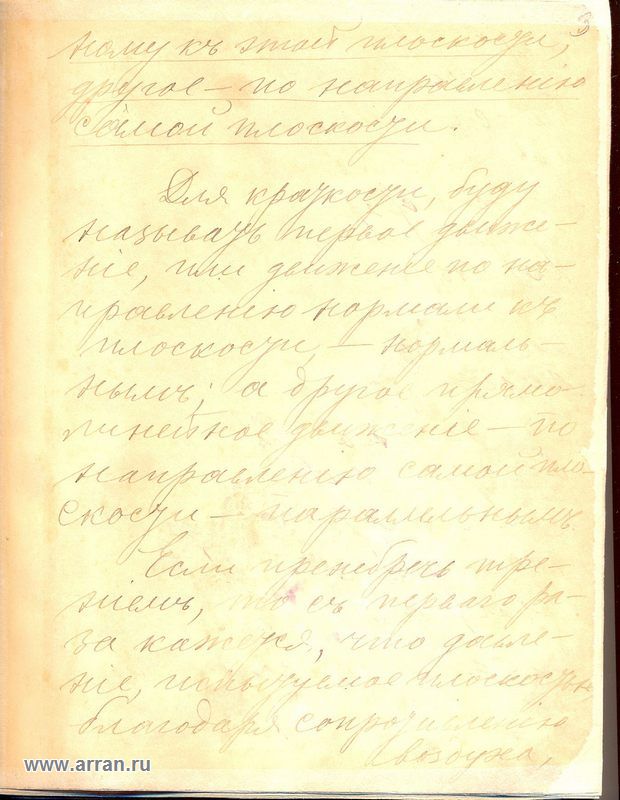 3
ному къ этой плоскости,
другое — по направленію
самой плоскости.
Для краткости, буду
называть первое движе-
ніе, или движеніе по на-
правленію нормали къ
плоскости, — нормаль-
нымъ; а другое прямо-
линейное движеніе — по
направленію самой пло-
скости — параллельнымъ.
Если пренебречь тре-
ніемъ, то съ перваго ра-
за кажется, что давле-
ніе, испытуемое плоскостью,
благодаря сопротивленію
воздуха,
www.arran.ru